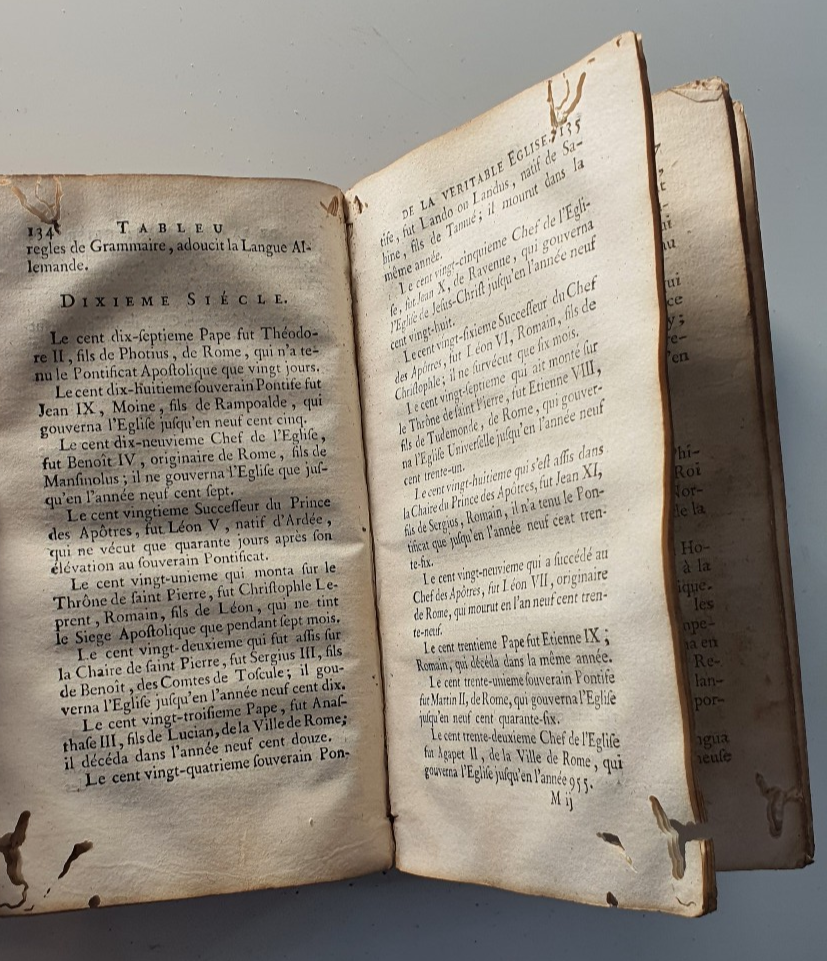 134 TABLEU
regles de Grammaire, adoucit la Langue Al-
lemande.
DIXIEME SIÉCLE.
Le cent dix-ſeptieme Pape fut Théodo-
re II, fils de Photius, de Rome, qui n'a te-
nu le Pontificat Apoſtolique que vingt jours.
Le cent dix-huitieme ſouverain Pontife fut
Jean IX, Moine, fils de Rampoalde, qui
gouverna l'Egliſe juſqu'en neuf cent cinq.
Le cent dix-neuvieme Chef de l'Egliſe,
fut Benoît IV, originaire de Rome, fils de
Manſinolus; il ne gouverna l'Egliſe que juſ-
qu'en l'année neuf cent ſept.
Le cent vingtieme Succeſſeur du Prince
des Apôtres, fut Léon V, natif d'Ardée,
qui ne vécut que quarante jours après ſon
élévation au ſouverain Pontificat.
Le cent vingt-unieme qui monta ſur le
Thrône de ſaint Pierre, fut Chriſtophle Le-
prent, Romain, fils de Léon, qui ne tint
le Siege Apoſtolique que pendant ſept mois.
Le cent vingt-deuxieme qui fut aſſis ſur
la Chaire de ſaint Pierre, fut Sergius III, fils
de Benoît, des Comtes de Toſcule; il gou-
verna l'Egliſe juſqu'en l'année neuf cent dix.
Le cent vingt-troiſieme Pape, fut Anaſ-
thaſe III, fils de Lucian, de la Ville de Rome;
il décéda dans l'année neuf cent douze.
Le cent vingt-quatrieme ſouverain Pon-
DE LA VERITABLE EGLISE. 135
tife, fut Lando ou Landus, natif de Sa-
bine, fils de Tanué; il mourut dans la
même année.
Le cent vingt-cinquieme Chef de l'Egli-
ſe, fut Jean X, de Ravenne, qui gouverna
l'Egliſe de Jeſus-Chriſt juſqu'en l'année neuf
cent vingt-huit.
Le cent vingt-ſixieme Succeſſeur du Chef
des Apôtres, fut Léon VI, Romain, fils de
Chriſtophle; il ne ſurvécut que ſix mois.
Le cent vingt-ſeptieme qui ait monté ſur
le Thrône de ſaint Pierre, fut Etienne VIII,
fils de Tudemonde, de Rome, qui gouver-
na l'Egliſe Univerſelle juſqu'en l'année neuf
cent trente-un.
Le cent vingt-huitieme qui s'eſt aſſis dans
la Chaire du Prince des Apôtres, fut Jean XI,
fils de Sergius, Romain, il n'a tenu le Pon-
tificat que juſqu'en l'année neuf cent tren-
te-ſix.
Le cent vingt-neuvieme qui a ſuccédé au
Chef des Apôtres, fut Léon VII, originaire
de Rome, qui mourut en l'an neuf cent tren-
te-neuf.
Le cent trentieme Pape fut Etienne IX;
Romain, qui décéda dans la même année.
Le cent trente-unieme ſouverain Pontife
fut Martin II, de Rome, qui gouverna l'Egliſe
juſqu'en neuf cent quarante-ſix.
Le cent trente-deuxieme Chef de l'Egliſe
fut Agapet II, de la Ville de Rome, qui
gouverna l'Egliſe juſqu'en l'année 955.
M ij